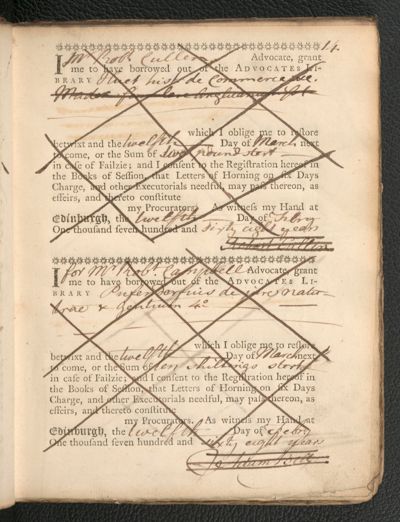 14.
I Mr Robt. Cullen Advocate, grant
me to have borrowed out of the ADVOCATES LI-
BRARY Huet hist. de Commerce &c.
Madox
which I oblige me to restore
betwixt and the twelfth Day of March next
to come, or the Sum of two pound ster:
in case of Failzie; and I consent to the Registration hereof in
the Books of Session, that Letters of Horning on six Days
Charge, and other Executorials needful, may pass thereon, as
effeirs, and thereto constitute
my Procurators. As witness my Hand at
Edinburgh, the twelfth Day of Febry
One thousand seven hundred and sixty eight years
Robert Cullen
I for Mr Robt. Campbell Advocate, grant
me to have borrowed out of the ADVOCATES LI-
BRARY Pufendorfius de jure natu-
rae & Gentium 4o
which I oblige me to restore
betwixt and the twelfth Day of March next
to come, or the Sum of ten shillings ster:
in case of Failzie; and I consent to the Registration hereof in
the Books of Session, that Letters of Horning on six Days
Charge, and other Executorials needful, may pass thereon, as
effeirs, and thereto constitute
my Procurators. As witness my Hand at
Edinburgh, the twelfth Day of Febry
One thousand seven hundred and sixty eight years
Adam